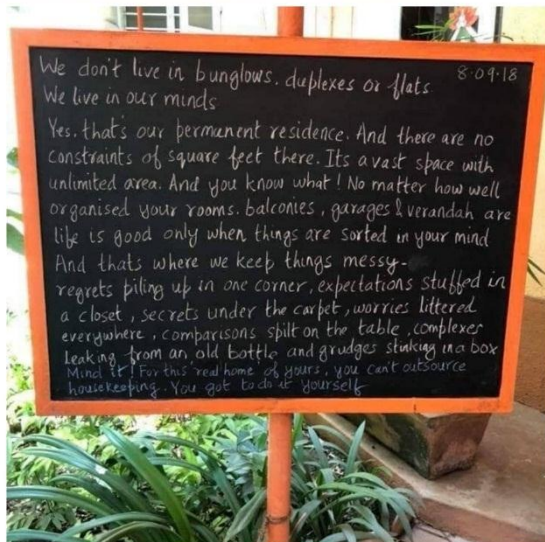 We don't live in bunglows. duplexes or flats 8.09.18
We live in our minds
Yes. that's our permanent residence. And there are no
constraints of square feet there. Its a vast space with
unlimited area. And you know what! No matter how well
organised your rooms. balconies, garages & verandah are
life is good only when things are sorted in your mind
And thats where we keep things messy-
regrets piling up in one corner, expectations stuffed in
a closet, secrets under the carpet, worries littered
everywhere, comparisons spilt on the table, complexes
leaking from an old bottle and grudges stinking in a box
Mind it! For this 'real home' of yours, you can't outsource
housekeeping. You got to do it yourself